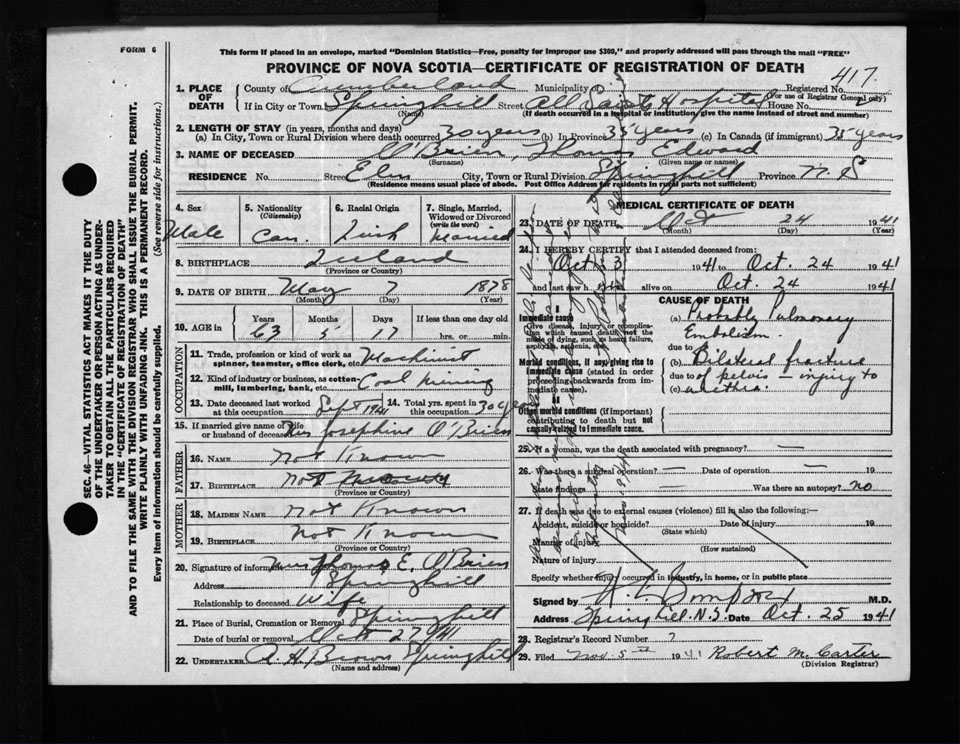 FORM 6
This form if placed in an envelope, marked "Dominion Statistics—Free, penalty for improper use $300," and properly addressed will pass through the mail "FREE"
PROVINCE OF NOVA SCOTIA—CERTIFICATE OF REGISTRATION OF DEATH
417.
1. PLACE OF DEATH
County of Cumberland Municipality of Registered No.
(For use of Registrar General only)
If in City or Town Springhill Street All Saints Hospital House No.
(Name) (If death occurred in a hospital or institution, give the name instead of street and number)
2. LENGTH OF STAY (in years, months and days)
(a) In City, Town or Rural Division where death occurred 30 years (b) In Province 35 years (c) In Canada (if immigrant) 35 years
3. NAME OF DECEASED O'Brien, Thomas Edward
(Surname) (Given name or names)
RESIDENCE No. Street Elm City, Town or Rural Division Springhill Province N. S
(Residence means usual place of abode. Post Office Address for residents in rural parts not sufficient)
4. Sex Male
5. Nationality (Citizenship) Can.
6. Racial Origin Irish
7. Single, Married, Widowed or Divorced (write the word) Married
8. BIRTHPLACE Ireland
(Province or Country)
9. DATE OF BIRTH May 7 1878
(Month) (Day) (Year)
10. AGE in Years 63 Months 5 Days 17 If less than one day old hrs. or min.
OCCUPATION
11. Trade, profession or kind of work as spinner, teamster, office clerk, etc. Machinist
12. Kind of industry or business, as cotton-mill, lumbering, bank, etc. Coal Mining
13. Date deceased last worked at this occupation Sept 1941
14. Total yrs. spent in this occupation 30 years
15. If married give name of wife or husband of deceased Mrs Josephine O'Brien
FATHER
16. NAME Not Known
17. BIRTHPLACE Not
(Province or Country)
MOTHER
18. MAIDEN NAME Not Known
19. BIRTHPLACE Not Known
(Province or Country)
20. Signature of informant Mrs Thomas E. O'Brien
Address Springhill
Relationship to deceased Wife
21. Place of Burial, Cremation or Removal Springhill
Date of burial or removal Oct 27 1941
22. UNDERTAKER A. H. Brown Springhill
(Name and address)
MEDICAL CERTIFICATE OF DEATH
23. DATE OF DEATH Oct 24 1941
(Month) (Day) (Year)
24. I HEREBY CERTIFY that I attended deceased from:
Oct 3 1941 to Oct. 24 1941
and last saw h alive on Oct. 24 1941
CAUSE OF DEATH
Immediate cause
Give disease, injury or complication which caused death, not the mode of dying, such as heart failure, asphyxia, asthenia, etc.
(a) Probably Pulmonary Embolism.
due to
Morbid conditions, if any, giving rise to immediate cause (stated in order proceeding backwards from immediate cause).
(b) Bilateral fracture
due to of pelvis - injury to
(c) urethra.
Other morbid conditions (if important) contributing to death but not causally related to immediate cause.
25. If a woman, was the death associated with pregnancy? —
26. Was there a surgical operation? — Date of operation — 19
State findings — Was there an autopsy? no
27. If death was due to external causes (violence) fill in also the following:—
Accident, suicide or homicide? Date of injury 19
(State which)
Manner of injury
(How sustained)
Nature of injury
Specify whether injury occurred in industry, in home, or in public place
Signed by M.D.
Address Springhill, N.S. Date Oct. 25 1941
28. Registrar's Record Number 7
29. Filed Nov. 5th 1941 Robert M. Carter
(Division Registrar)
SEC. 46—VITAL STATISTICS ACT MAKES IT THE DUTY
OF THE UNDERTAKER OR PERSON ACTING AS UNDER-
TAKER TO OBTAIN ALL THE PARTICULARS REQUIRED
IN THE "CERTIFICATE OF REGISTRATION OF DEATH"
AND TO FILE THE SAME WITH THE DIVISION REGISTRAR WHO SHALL ISSUE THE BURIAL PERMIT.
WRITE PLAINLY WITH UNFADING INK. THIS IS A PERMANENT RECORD.
Every item of information should be carefully supplied. (See reverse side for instructions.)